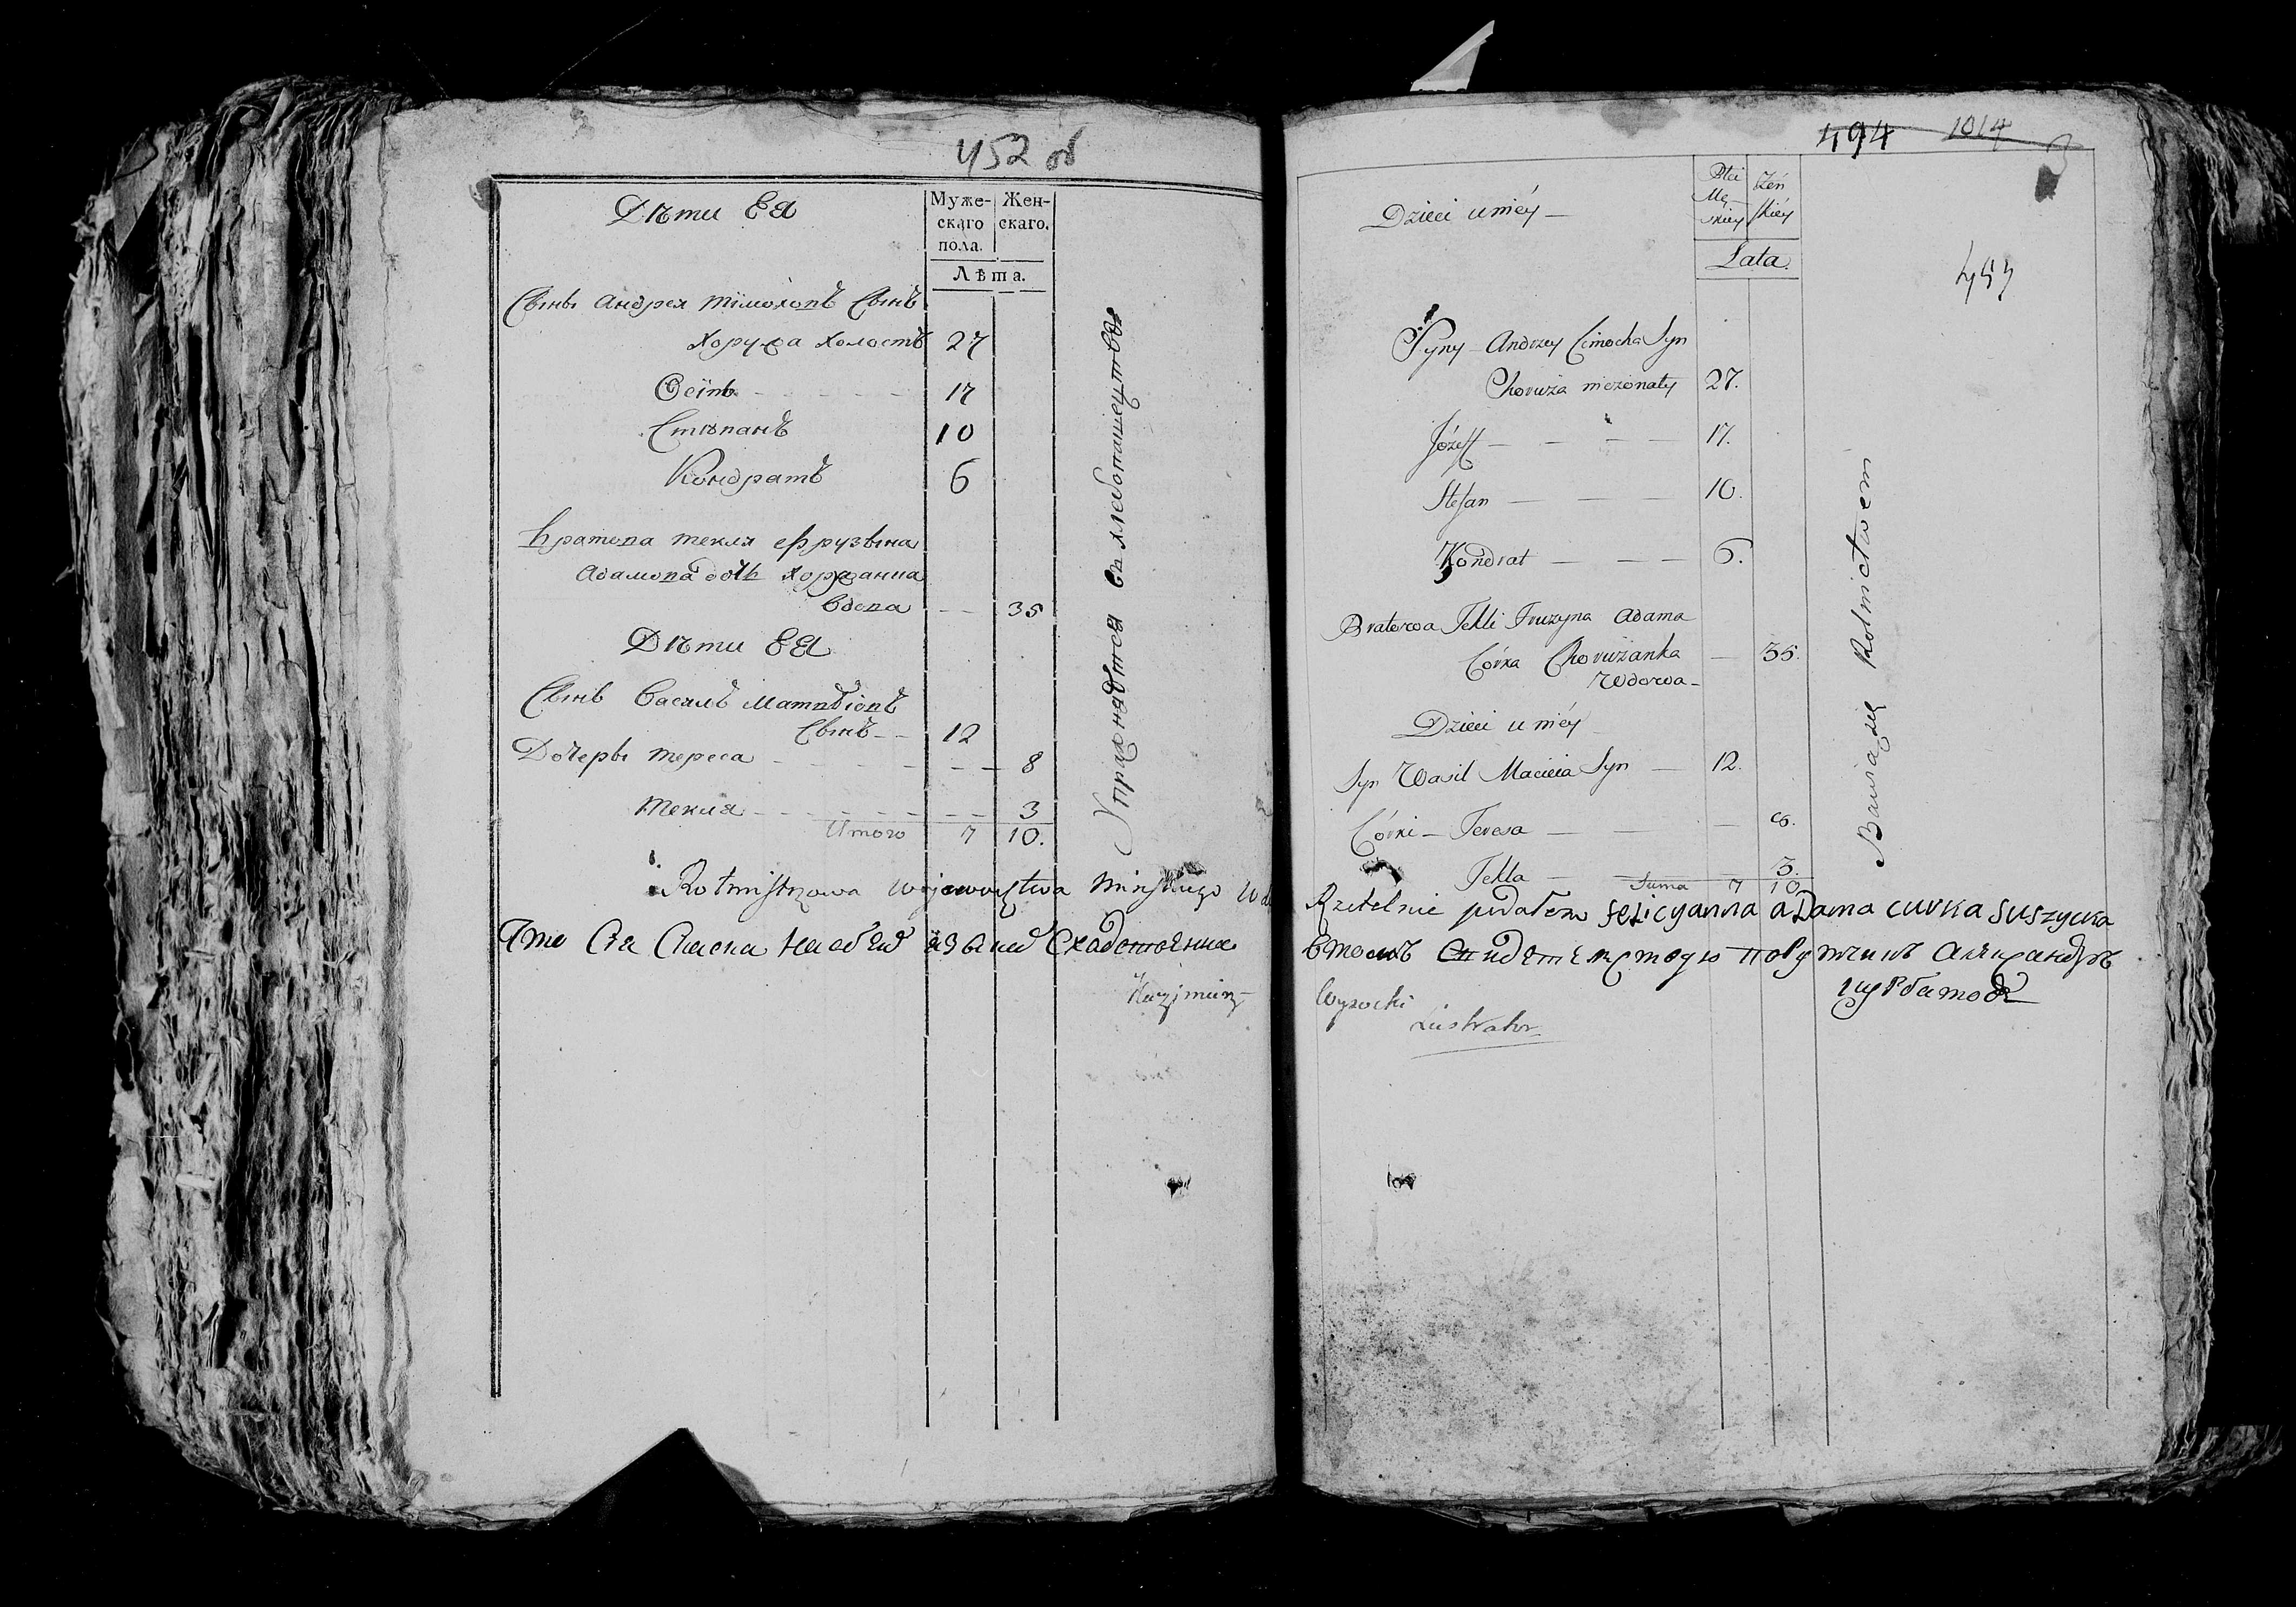 452 об
Дѣти Ея
Муже- Жен-
скаго скаго.
пола.
Лѣта.
Сыны Андрея Тимоховъ Сынъ
Хоружа холостъ 27
Осипъ 17
Степанъ 10
Кондратъ 6
Братова Текля Фрузына
Адамова дочь Хоружанка
вдова 35
Дѣти Ея
Сынъ Василь Матвѣювъ
Сынъ 12
Дочеры Тереса 8
Текля 3
Итого 7 10.
Упражняются въ хлебопашецтвѣ
Rotmistrzowa Wojewuztwa Minskiego
Что Сия Сказка на обеих языках Сходственна
Kazimierz
494 1014
Dzieci u niéy
Płci Żeń
Mę- skiéy
skiey
Lata.
Syny Andrzey Cimocha Syn
Choruża nieżonaty 27.
Józeff 17.
Stefan 10.
Kondrat 6.
Bratowa Tekli Fruzyna Adama
Córka Chorużanka 35.
Wdowa
Dzieci u niéy
Syn Wasil Macieia Syn 12.
Córki Teresa 8.
Tekla 3.
Suma 7 10
Bawią się Rolnictwem
Rzetelnie podałem Felicyanna aDama curka suszycka
втомъ свидетельствую
Wysocki
Lustrator